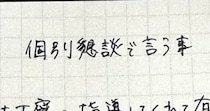 個別懇談で言う事
指導してくれて有